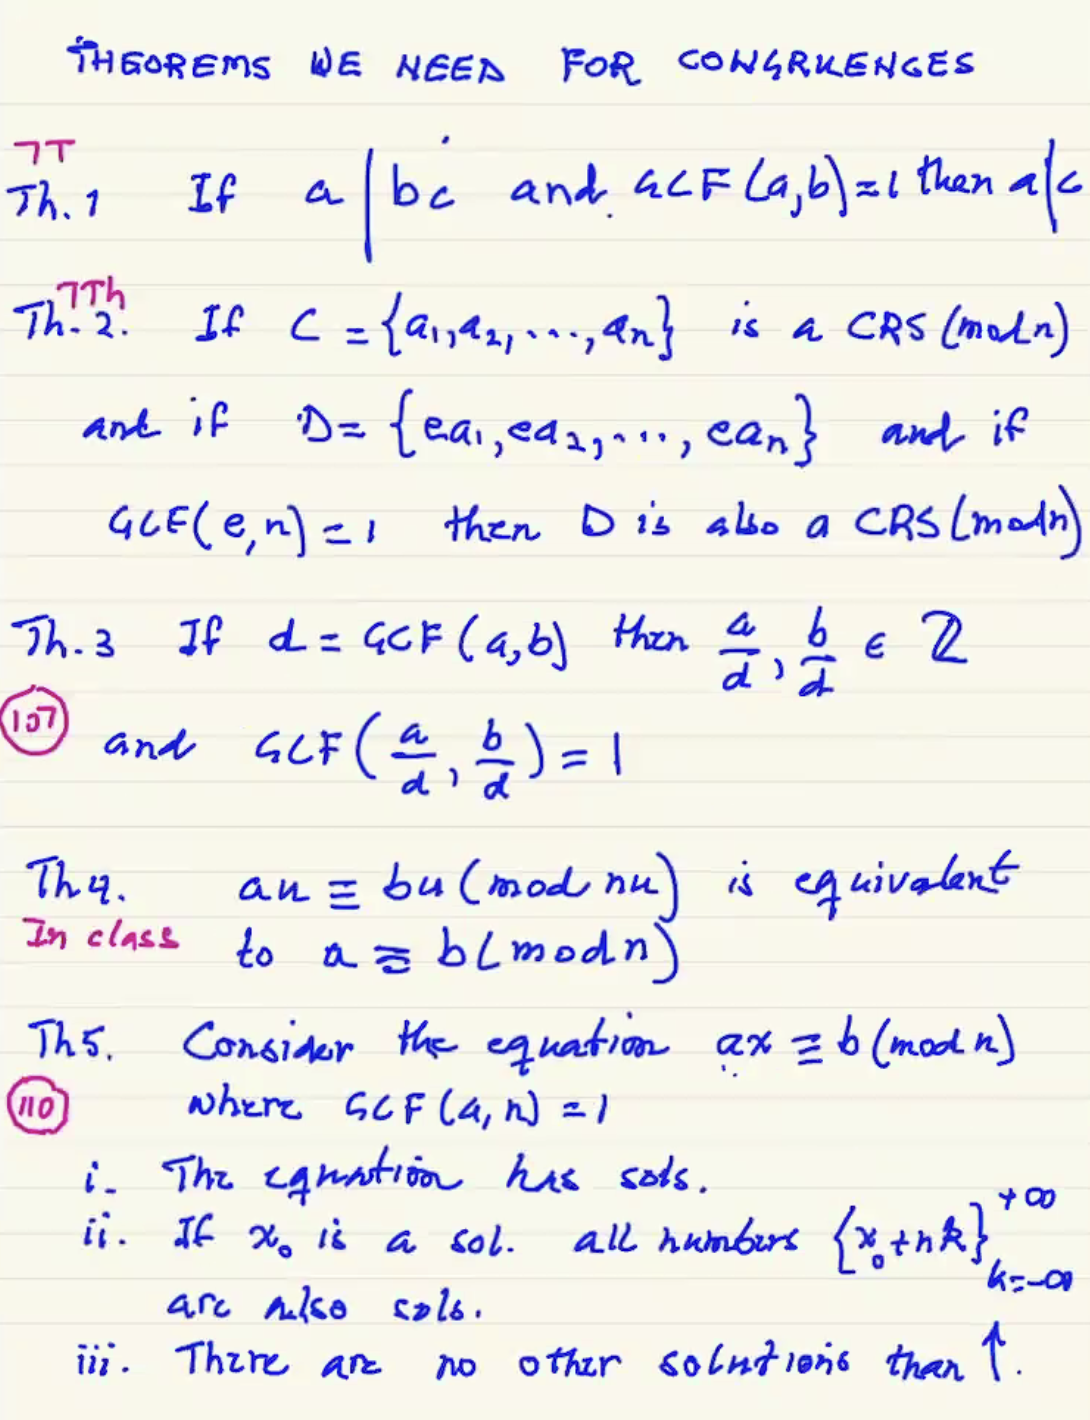 THEOREMS WE NEED FOR CONGRUENCES
7T
Th. 1 If a | bc and GCF (a,b) = 1 then a|c
7Th
Th. 2. If C = {a₁, a₂, ..., aₙ} is a CRS (mod n)
and if D = {ea₁, ea₂, ..., eaₙ} and if
GCF(e, n) = 1 then D is also a CRS (mod n)
Th. 3 If d = GCF (a, b) then a/d, b/d ∈ ℤ
107 and GCF (a/d, b/d) = 1
Th 4. au ≡ bu (mod nu) is equivalent
In class to a ≡ b (mod n)
Th 5. Consider the equation ax ≡ b (mod n)
110 where GCF (a, n) = 1
i. The equation has sols.
ii. If x₀ is a sol. all numbers {x₀ + nk}^{+∞}_{k=-∞}
are also sols.
iii. There are no other solutions than ↑.